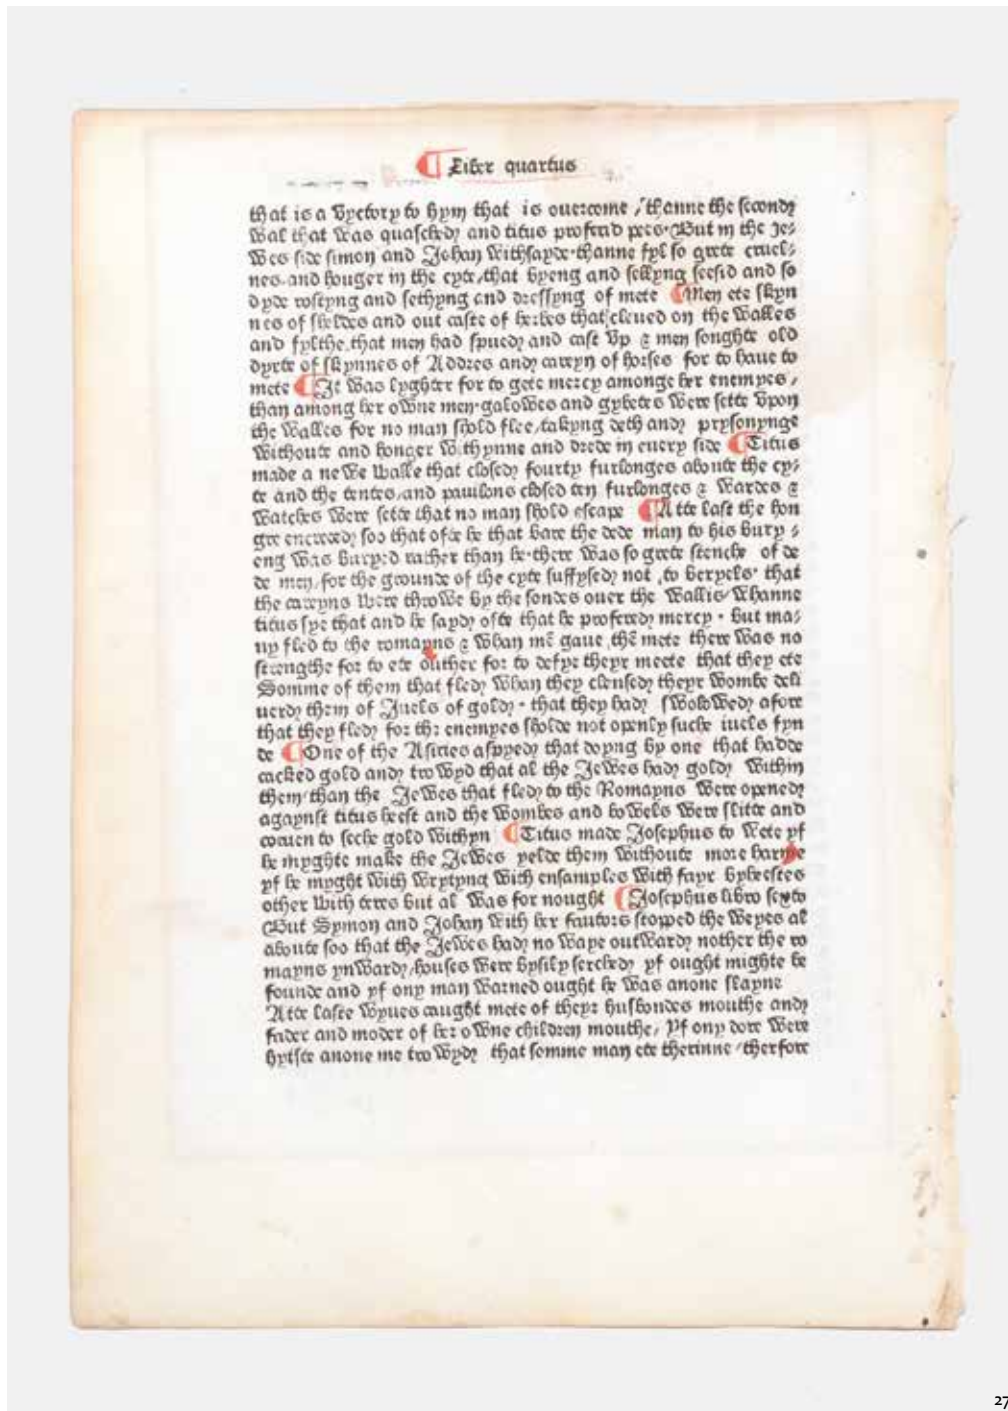 ¶ Liber quartus
that is a vyctory to hym that is ouercome / thanne the second
wal that was quasched and titus proferid pees · But in the Je⸗
wes side simon and Johan withsayde · thanne fyl so grete cruel⸗
nes and honger in the cyte / that byeng and sellyng seesid and so
dyde rostyng and sethyng and dressyng of mete ¶ Men ete skyn
nes of sheldes and out caste of herbes that cleued on the walles
and fylthe that men had spued and cast vp & men soughte old
dyrte of skynnes of Addres and careyn of horses for to haue to
mete ¶ It was lyghter for to gete mercy amonge her enemyes /
than among her owne men · galowes and gybetes were sette vpon
the walles for no man shold flee / takyng deth and prysonynge
withoute and honger withynne and drede in euery side ¶ Titus
made a newe walle that closed fourty furlonges aboute the cy⸗
te and the tentes / and pauilons closed ten furlonges & wardes &
watches were sette that no man shold escape ¶ Atte last the hon
gre encreced soo that ofte he that bare the dede man to his bury ⸗
eng was buryed rather than he · there was so grete stenche of de
de men / for the grounde of the cyte suffysed not to beryels · that
the careyns were throwe by the sondes ouer the wallis / whanne
titus sye that and he sayd ofte that he profered mercy · but ma⸗
ny fled to the romayns & whan mē gaue thē mete there was no
strengthe for to ete outher for to defye theyr meete that they ete
Somme of them that fled whan they clensed theyr wombe deli
uerd them of Juels of gold · that they had swolowed afore
that they fled for the enemyes sholde not openly suche iuels fyn
de ¶ One of the Asiries aspyed that doyng by one that hadde
cacked gold and trowyd that al the Jewes had gold within
them / than the Jewes that fled to the Romayns were opened
agaynst titus heest and the wombes and bowels were slitte and
coruen to seche gold withyn ¶ Titus made Josephus to wete yf
he myghte make the Jewes yelde them withoute more harme
yf he myght with wrytyng with ensamples with fayr byheestes
other with teres but al was for nought ¶ Josephus libro sexto
But Symon and Johan with her fautors stopped the weyes al
aboute soo that the Jewes had no waye outward nother the ro
mayns ynward / houses were bysily serched yf ought mighte be
founde and yf ony man warned ought he was anone slayne
Atte laste wyues caught mete of theyr husbondes mouthe and
fader and moder of her owne children mouthe / Yf ony dore were
hytste anone me trowyd that somme man ete therinne / therfore
27